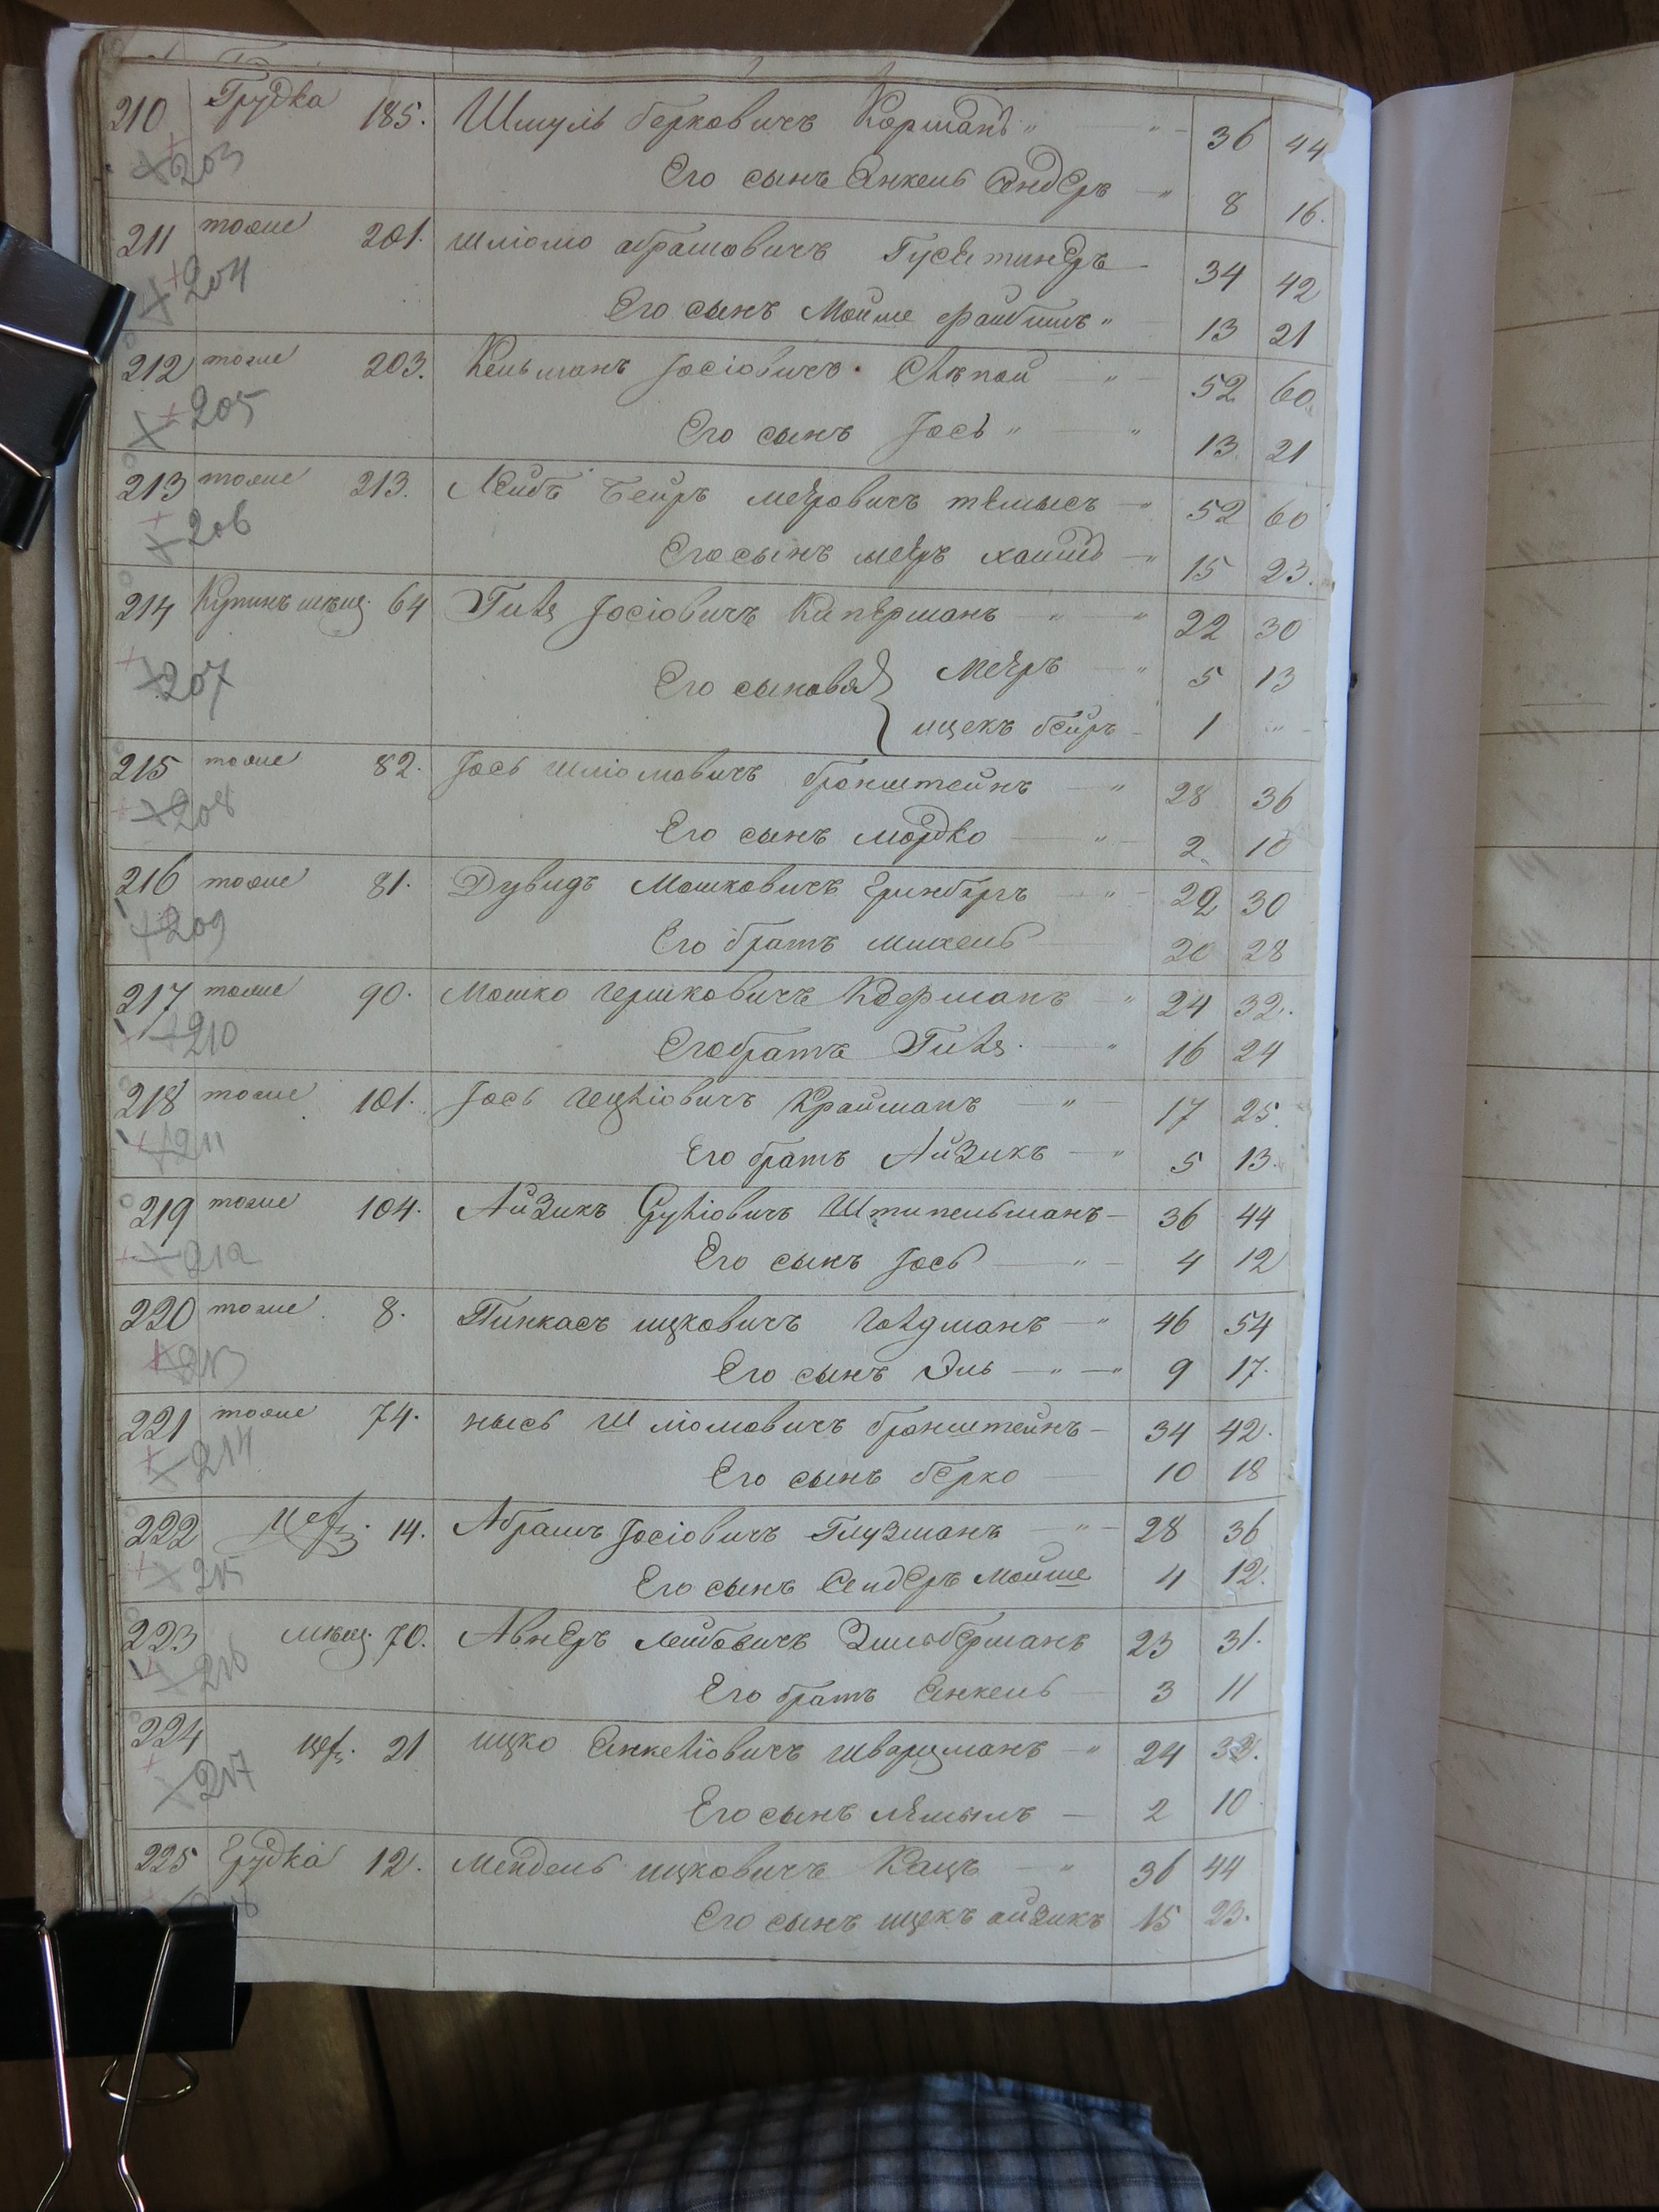 210 Грудка 185. Шмуль Берковичъ Корманъ 36 44
203 Его сынъ Янкель Сендеръ 8 16.
211 тоже 201. Шліомо Абрамовичъ 34 42
204 Его сынъ Мойше Файбишъ 13 21
212 тоже 203. Кельманъ Іосіовичъ Слѣпой 52 60
205 Его сынъ Іось 13 21
213 тоже 213. Лейбъ Бейръ Меѣровичъ 52 60
206 Его сынъ Меѣръ Хаимъ 15 23.
214 64 Гилѣ Іосіовичъ Киперманъ 22 30
207 Его сыновья Меѣръ 5 13
ицекъ бейръ 1
215 тоже 82. Іось Шліомовичъ Бронштейнъ 28 36
208 Его сынъ Мордко 2 10
216 тоже 81. Дувидъ Мошковичъ Гринбаргъ 22 30
209 Его братъ Михель 20 28
217 тоже 90. Мошко Гершковичъ Кофманъ 24 32.
210 Его братъ Гилѣ 16 24
218 тоже 101. Іось Гецліовичъ Крайманъ 17 25.
211 Его братъ Айзикъ 5 13.
219 тоже 104. Айзикъ Сруліовичъ Штипельманъ 36 44
212 Его сынъ Іось 4 12
220 тоже 8. Пинкасъ ицковичъГолдманъ 46 54
213 Его сынъ Эль 9 17.
221 тоже 74. Нысь Шліомовичъ Бронштейнъ 34 42.
214 Его сынъ Берко 10 18
222 14. Абрамъ Іосіовичъ Глузманъ 28 36
215 Его сынъ Сендеръ Мойше 4 12.
223 мѣщ. 70. Авнеръ Лейбовичъ Зильберманъ 23 31.
216 Его братъ Янкель 3 11
224 21 ицко Янкеліовичъ Шварцманъ 24 32.
217 Его сынъ 2 10
225 Грудка 12. Мендель ицковичъ Кацъ 36 44
Его сынъ ицекъ айзикъ 15 23.